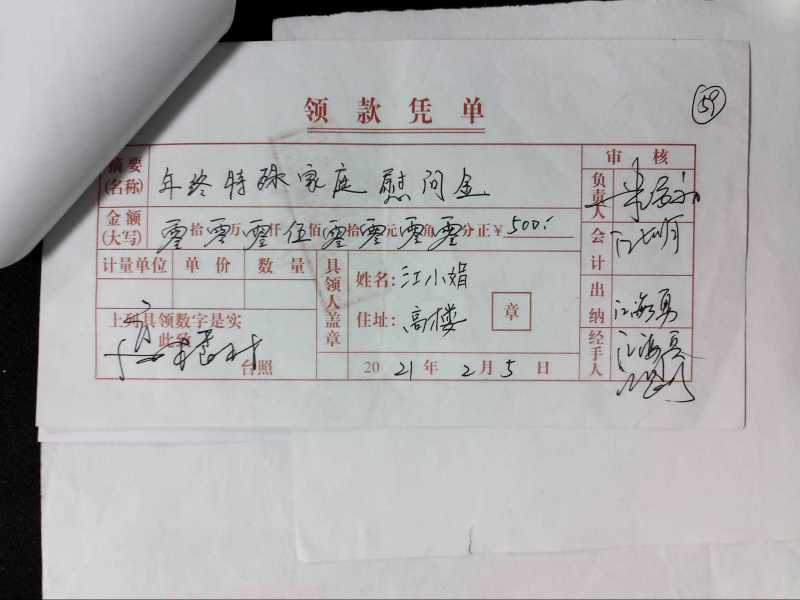 领款凭单
59
摘要(名称) 年终特殊家庭慰问金
审核
金额(大写) 零拾零万零仟伍佰零拾零元零角零分正¥500.-
计量单位 单价 数量
上列具领数字是实
此致
台照
具领人盖章
姓名:江小娟
住址:高楼
章
2021年2月5日
负责人
会计
出纳 江海勇
经手人 江海亮